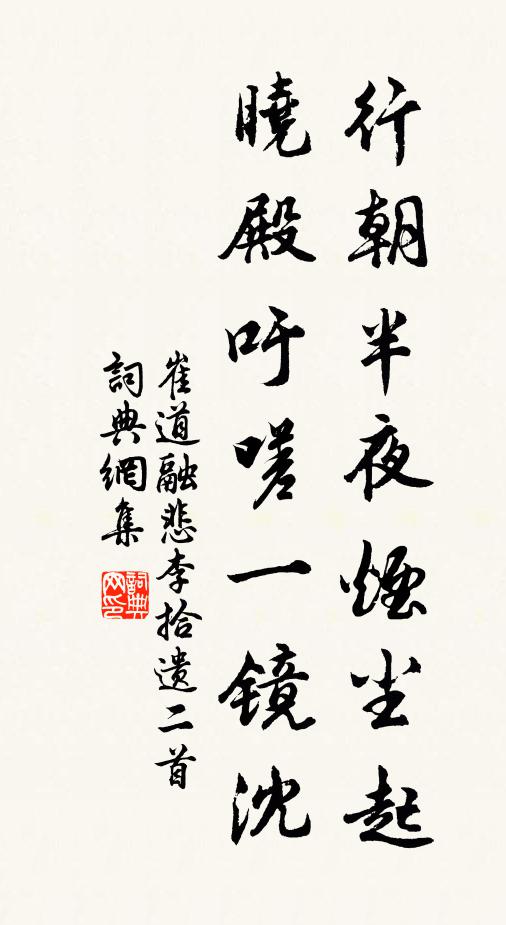 行朝半夜煙尘起
曉殿吁嗟一镜沈
崔道融悲李拾遗二首
詞典網集
詞典网印